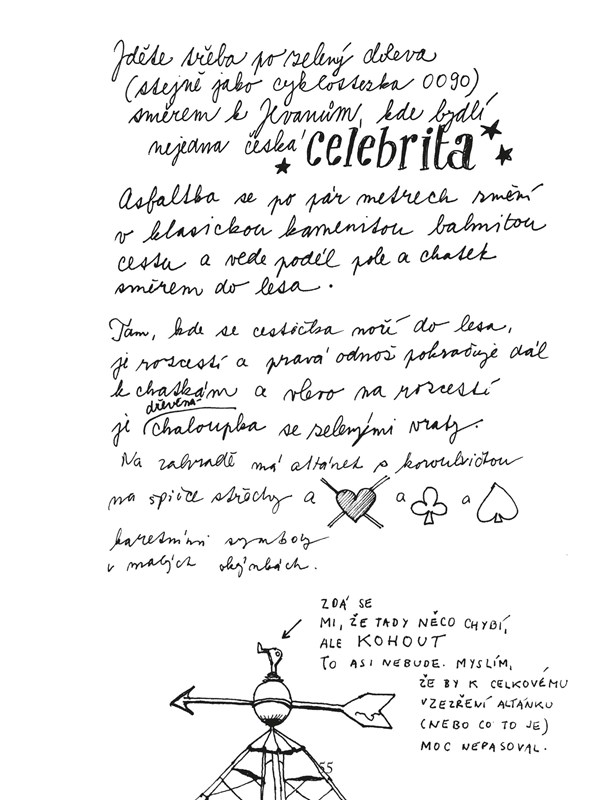 Jděte třeba po zelený doleva
(stejně jako cyklostezka 0090)
směrem k Jevanům, kde bydlí
nejedna česká celebrita
Asfaltka se po pár metrech smění
v klasickou kamenitou balmitou
cestu a vede podél pole a chatek
směrem do lesa.
Tam, kde se cestička noří do lesa,
je rozcestí a pravá odnož pokračuje dál
k chatkám a vlevo na rozcestí
dřevěná
je chaloupka se zelenými vraty.
Na zahradě má altánek s korouhvičkou
na špičce střechy a a a
karetními symboly
v malých okýnkách.
ZDÁ SE
MI, ŽE TADY NĚCO CHYBÍ,
ALE KOHOUT
TO ASI NEBUDE. MYSLÍM,
ŽE BY K CELKOVÉMU
VZEZŘENÍ ALTÁNKU
(NEBO CO TO JE)
MOC NEPASOVAL.
55